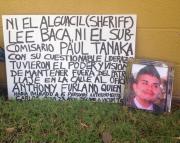 NI EL ALGUACIL (SHERIFF)
LEE BACA, NI EL SUB-
COMISARIO PAUL TANAKA
CON SU CUESTIONABLE LIDERAZ
TUVIERON EL PODER Y VISION
DE MANTENER FUERA DEL PATRU
LLAJE EN LA CALLE AL OFICI
ANTHONY FURLANO QUIEN